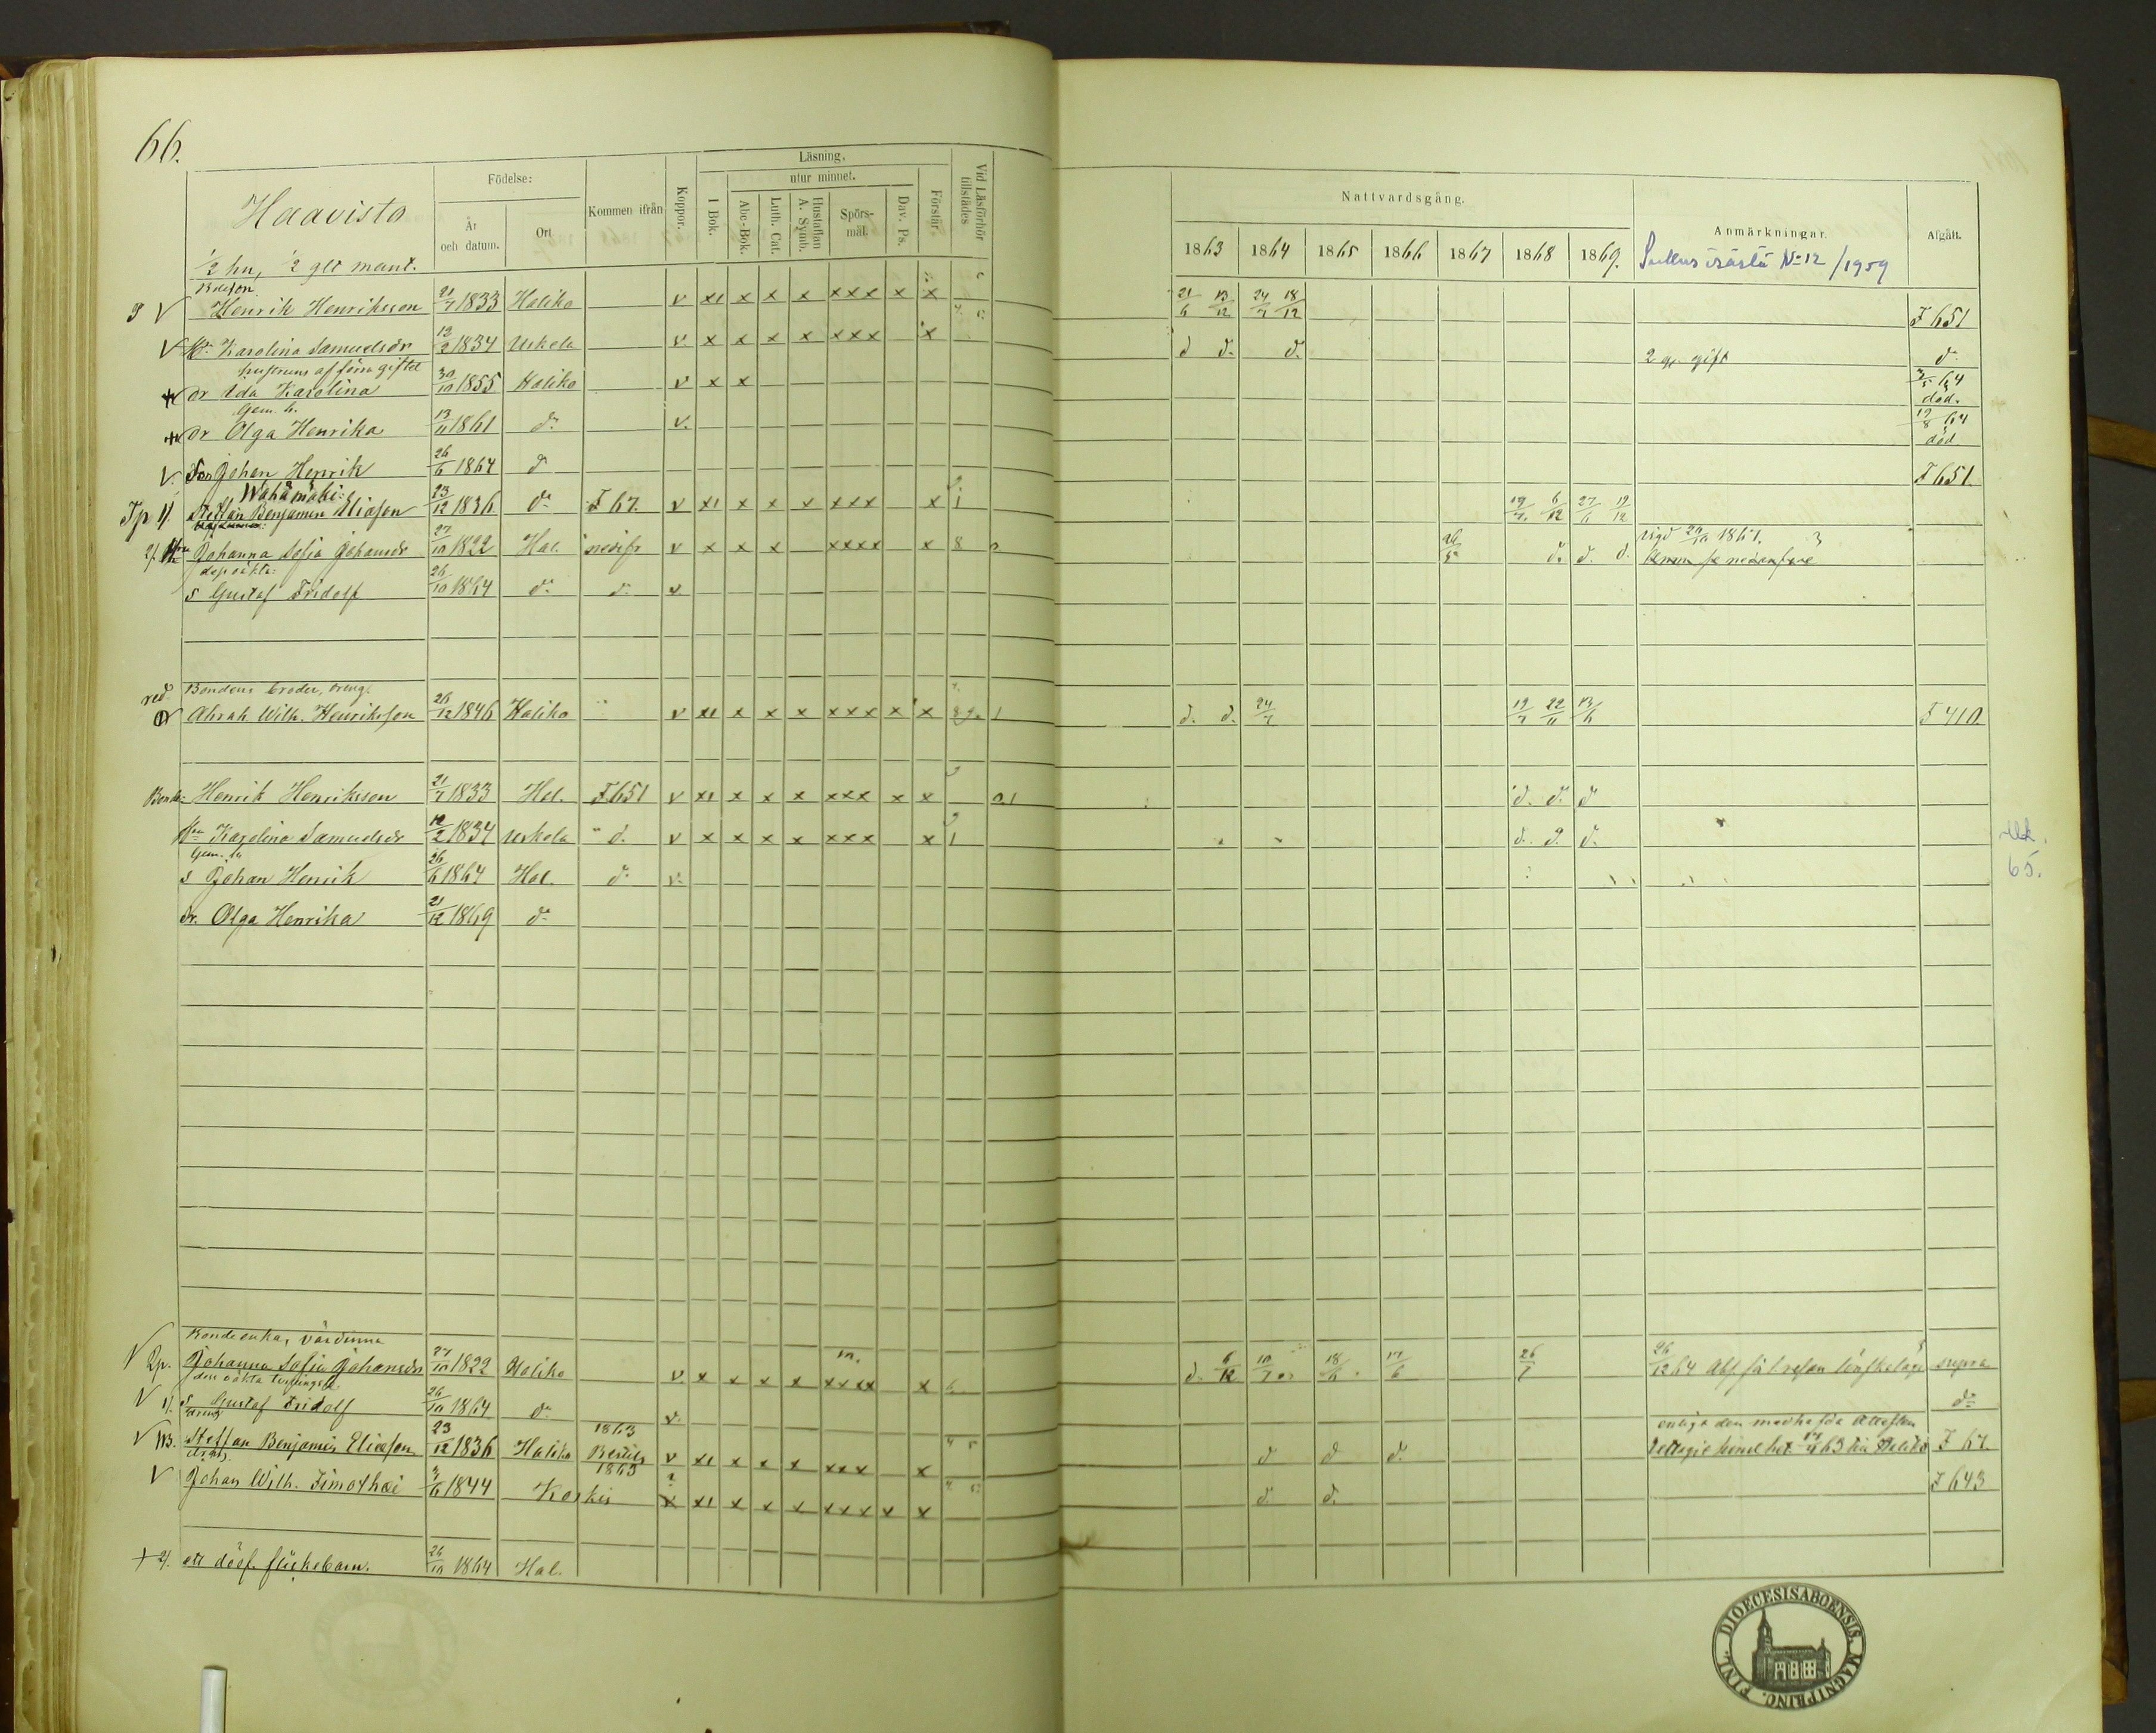 66.
Haavisto
½ hu, ½ glt mant.
Födelse:
År och datum.
Ort
Kommen ifrån
Koppor.
Läsning.
utur minnet.
I Bok.
Abc-Bok.
Luth. Cat.
Hustaflan A. Symb.
Spörsmål.
Dav. Ps.
Förstår.
Vid Läsförhör tillstädes
Nattvardsgång.
1863 1864 1865 1866 1867 1868 1869.
Anmärkningar.
No 12/1959
Afgått.
Henrik Henriksson 21/7 1833 Haliko v x1 x x x xxx x x 21/6 13/12 24/7 18/12 F 651
Karolina Samuelsdr 12/2 1834 Uskela v x x x x xxx x d d. d. 2 g. gift d:
hustruns af förra giftet
dr Ida Karolina 30/10 1855 Haliko v x x 3/5 64 död.
Gem. b.
dr Olga Henrika 13/11 1861 d: v. 19/8 64 död
Son Johan Henrik 26/6 1864 d F 651.
Wähämäki:
Jp 1/. Staffan Benjamin Eliasson 23/12 1836 d: F 67. v x1 x x x xxx x 1 19/7 6/12 27/6 19/12
2/. Hu Johanna Sofia Johansdr 27/10 1822 Hal. nedifr v x x x xxxx x 8 26/5 d. d. d. vigd 1867.
s Gustaf Fridolf 26/10 1864 d: d: v.
Bondens broder, dreng.
red Abrah. Wilh. Henriksson 26/12 1846 Haliko v x1 x x x xxx x x 1 d. d. 24/7 19/7 22/11 13/6 F 410.
Bonde: Henrik Henriksson 21/7 1833 Hal. F 651 v x1 x x x xxx x x d. d. d
Hu Karolina Samuelsdr 12/2 1834 Uskela d. v x x x x xxx x 1 d. d. d.
Gem. b.
s Johan Henrik 26/6 1864 Hal. d: v.
dr. Olga Henrika 21/12 1869 d:
65.
Bondeenka, värdinna
v 2p. Johanna Sofia Johansdr 27/10 1822 Haliko v. x x x x xxxx x 6 d. 6/12 10/7 18/6 17/6 26/7 26/12 64 Abs. supra
v 1/. s Gustaf Fridolf 26/10 1864 d: v. d:
dreng 1863 enligt den medhafda attesten
v NB. Staffan Benjamin Eliasson 23/12 1836 Haliko v x1 x x x xxx x d d d. 63 Haliko F 67.
dreng 1863
v Johan Wilh. Timothæi 3/6 1844 Koskis x x1 x x x xxxx x x d. d. F 643
+ 2/. ett döf. flickebarn. 26/10 1864 Hal.
DIOECESIS ABOENSIS. MAGNI PRINC. FINL.